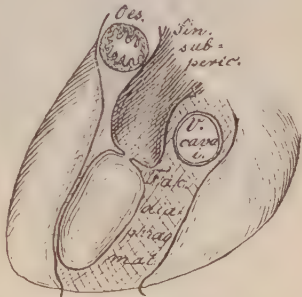 Oes.
Sin.
sub-
peric.
V.
cava
i.
dia-
phrag
mat.